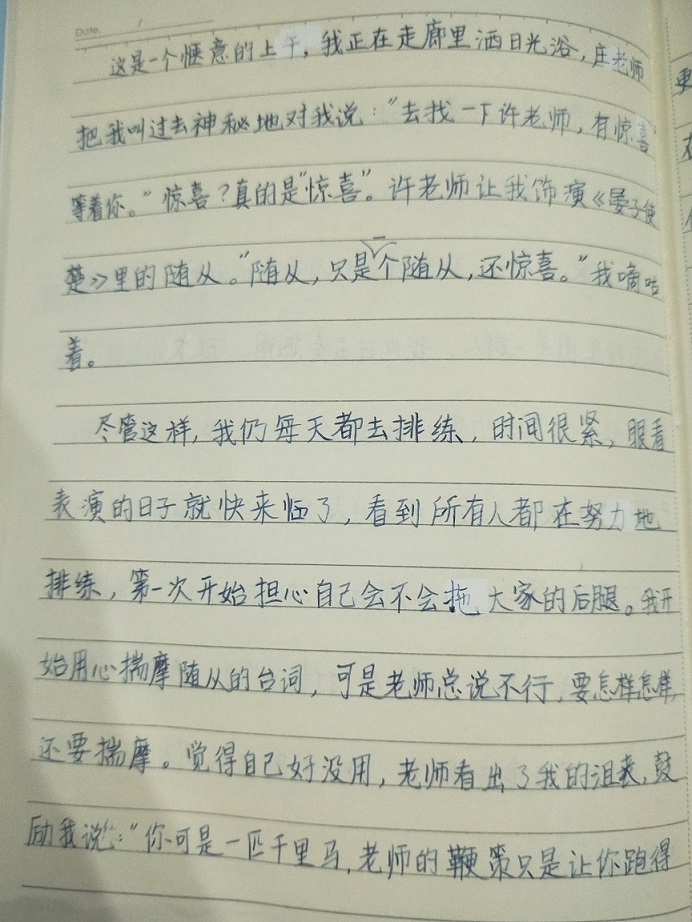 Date. /
这是一个惬意的上午,我正在走廊里洒日光浴,庄老师
把我叫过去神秘地对我说:“去找一下许老师,有惊喜
等着你。”惊喜?真的是“惊喜”。许老师让我饰演《晏子使
楚》里的随从。“随从,只是一个随从,还惊喜。”我嘀咕
着。
尽管这样,我仍每天都去排练,时间很紧,眼看
表演的日子就快来临了,看到所有人都在努力地
排练,第一次开始担心自己会不会拖大家的后腿。我开
始用心揣摩随从的台词,可是老师总说不行,要怎样怎样,
还要揣摩。觉得自己好没用,老师看出了我的沮丧,鼓
励我说:“你可是一匹千里马,老师的鞭策只是让你跑得